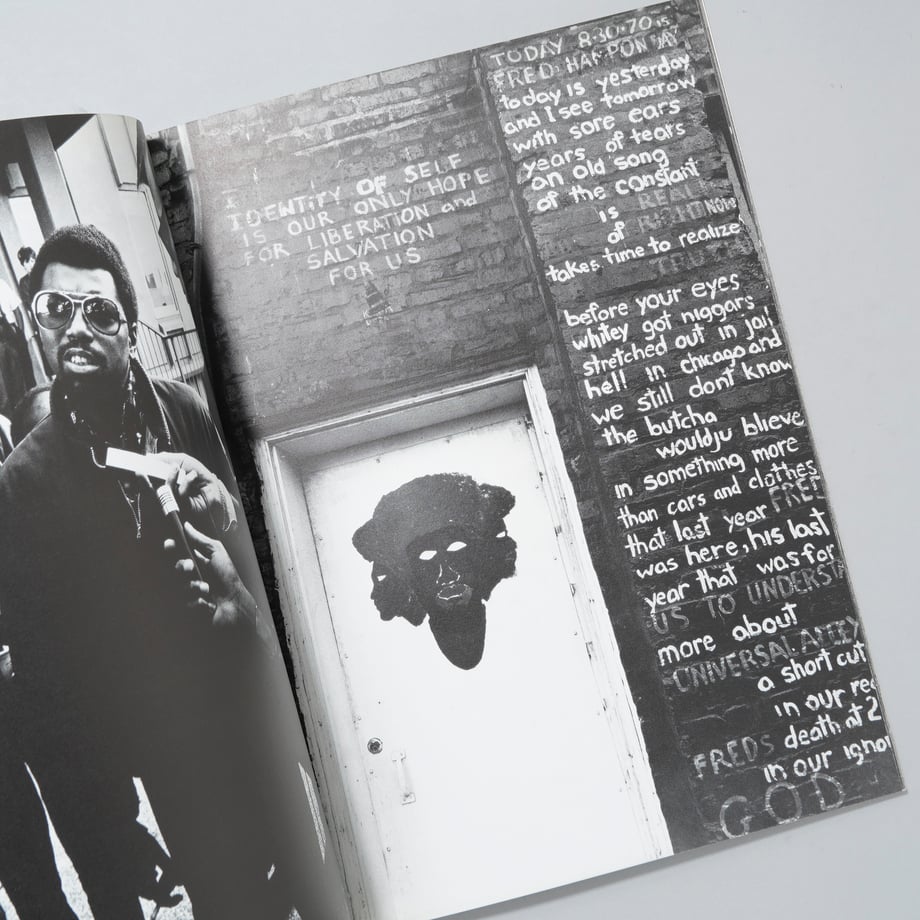 IDENTITY OF SELF
IS OUR ONLY HOPE
FOR LIBERATION and
SALVATION
FOR US
TODAY 8·30·70 is
FRED HAMPON DAY
today is yesterday
and I see tomorrow
with sore ears
years of tears
on old song
of the constant
is REAL
of RIGHT NOW
takes time to realize
TRUTH
before your eyes
whitey got niggars
stretched out in jail
hell in chicago and
we still don't know
the butcha
wouldju blieve
in something more
than cars and clothes
that last year FRED
was here, his last
year that was for
US TO UNDERSTA
more about
UNIVERSAL
a short cut
in our re
FREDS death at 2
in our igno
GOD